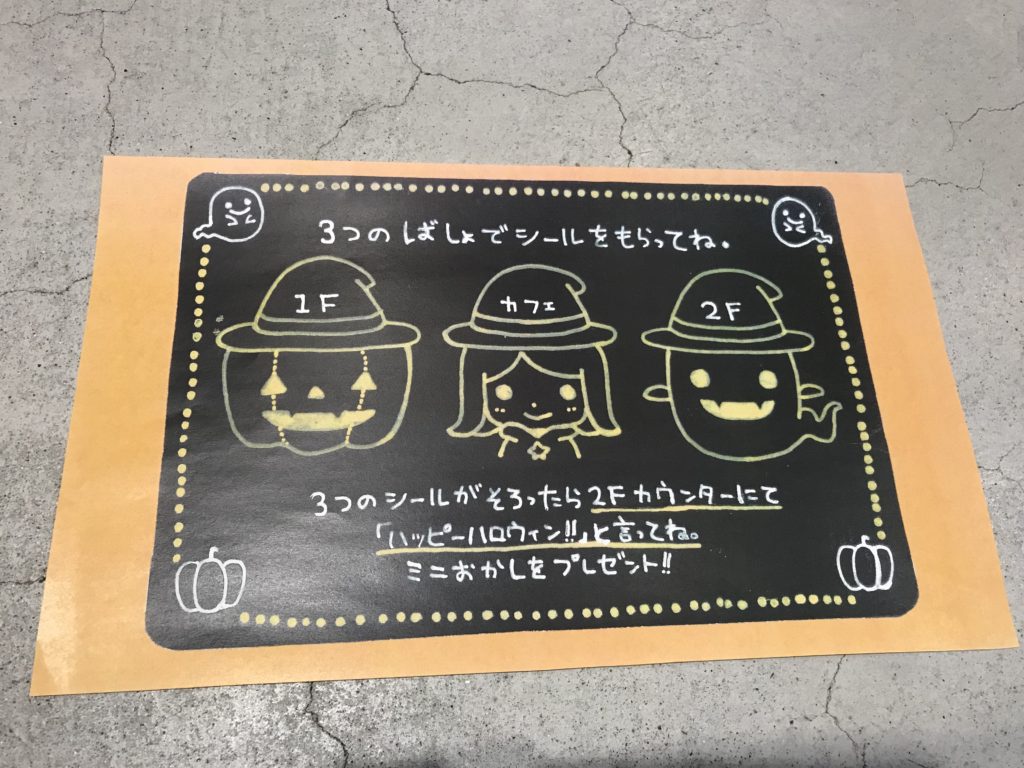 3つのばしょでシールをもらってね。
1F
カフェ
2F
3つのシールがそろったら2Fカウンターにて
「ハッピーハロウィン!!」と言ってね。
ミニおかしをプレゼント!!